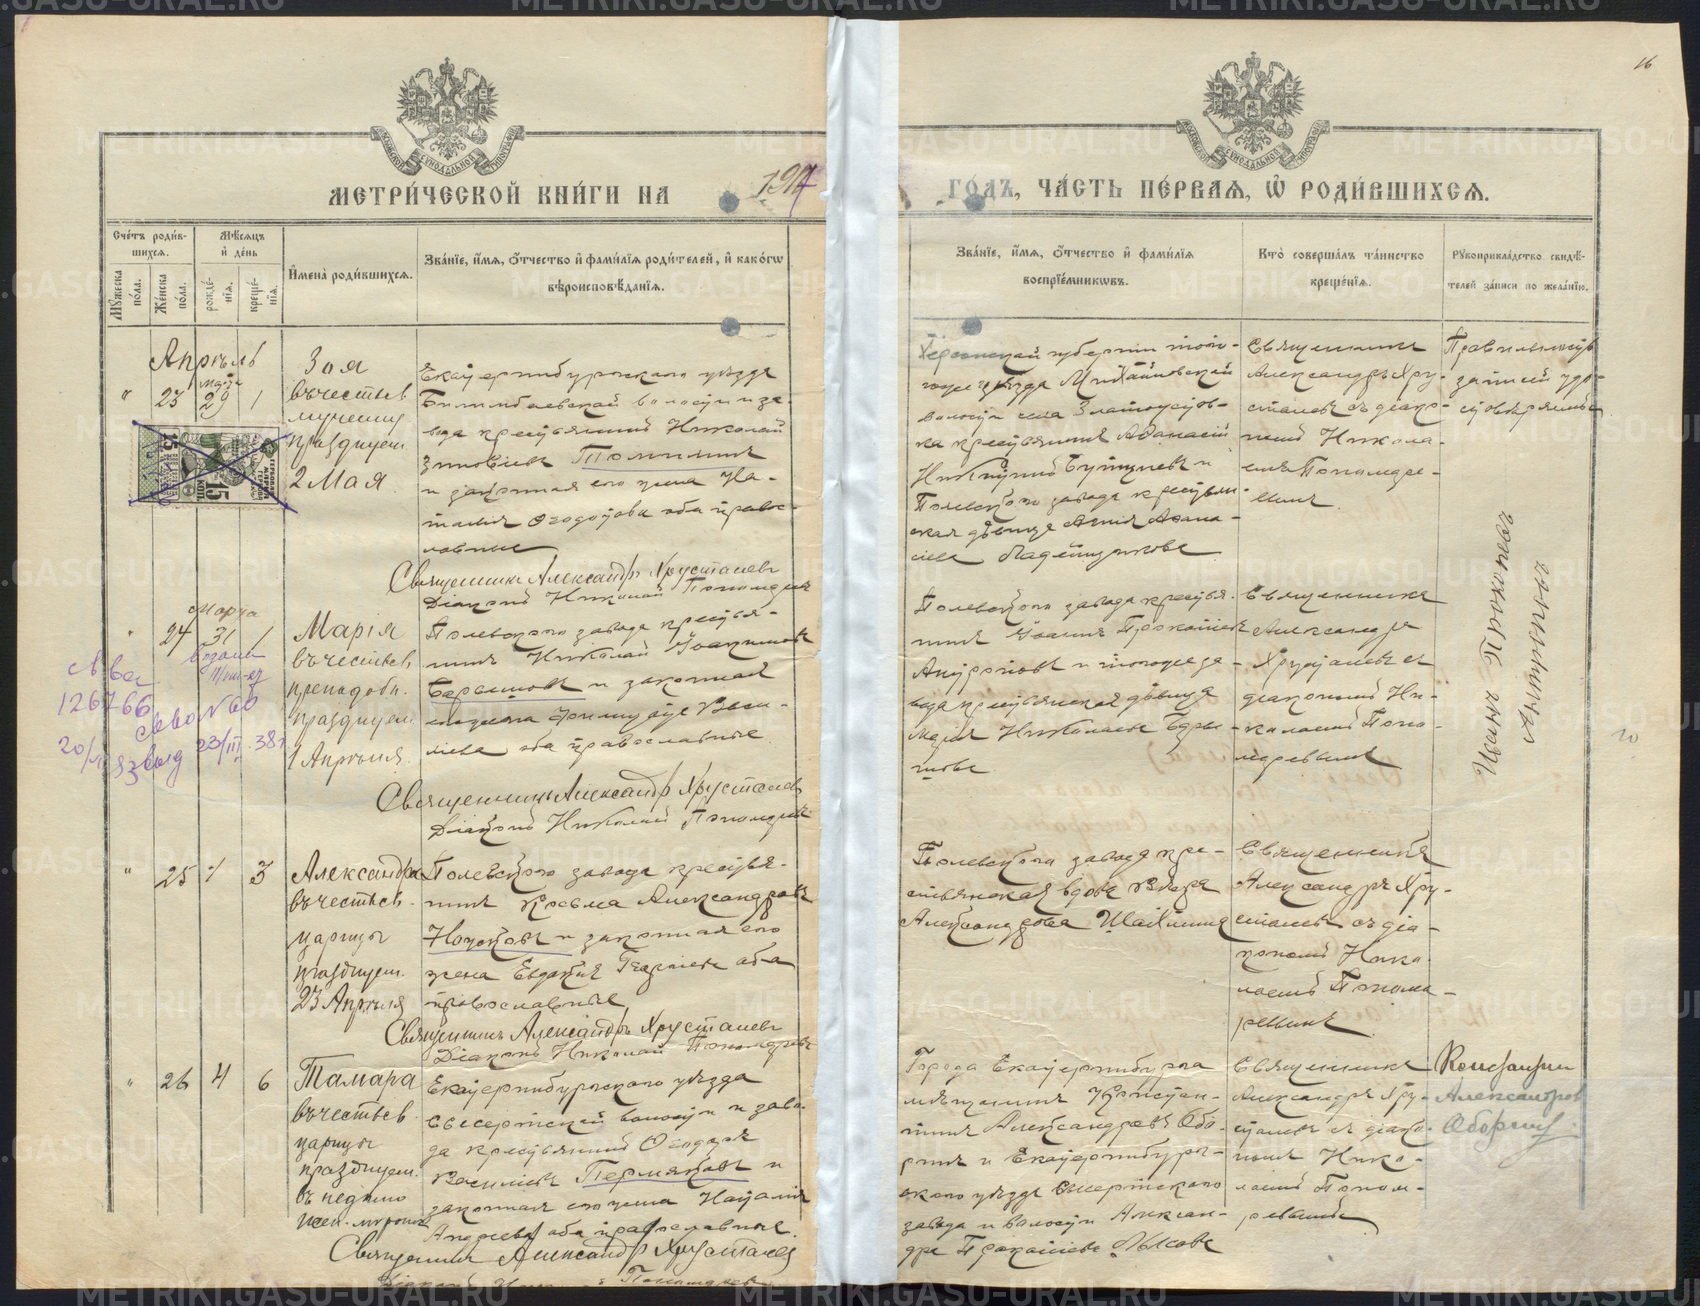 МЕТРИ́ЧЕСКОЙ КНИ́ГИ НА 1917 ГО́ДЪ, ЧА́СТЬ ПЕ́РВАЯ, Ѡ РОДИ́ВШИХСЯ.
16
Сче́тъ роди́в-
шихся.
Му́жеска по́ла.
Же́нска по́ла.
Мѣ́сяцъ и҆ де́нь
рожде́-
нїя.
креще́-
нїя.
И҆мена̀ роди́вшихся.
Зва́нїе, и҆́мя, ѻ҆́тчество и҆ фами́лїя роди́телей, и҆ како́гѡ
вѣроисповѣ́данїя.
Зва́нїе, и҆́мя, ѻ҆́тчество и҆ фами́лїя
воспрїе́мникѡвъ.
Кто̀ соверша́лъ та́инство
креще́нїя.
Рꙋкоприкла́дство свидѣ́-
телей за́писи по жела́нїю.
Апрѣль
" 23 Марта 29 1
Зоя
въ честь св.
мученицы
празднуем.
2 Мая.
Екатеринбургскаго уѣзда
Билимбаевской волости и за-
вода крестьянинъ Николай
Зиновіевъ
и законная его жена На-
талія Ѳеодотова оба правос-
лавные
Священникъ Александръ Хрусталевъ
Діаконъ Николай Пономаревъ
Херсонской губерніи того-
же уѣзда Михайловской
волости села Златоустов-
ка крестьянинъ Аѳанасій
Никитинъ и
Полевскаго завода крестьян-
ская дѣвица Аѳана-
сіева
Священникъ
Александръ Хру-
сталевъ съ діако-
номъ Никола-
емъ Пономаре-
вымъ.
Правильность
записи удо-
стовѣряемъ
15 КОП.
" 24 Марта 31 1
Марія
въ честь св.
преподобн.
празднуем.
1 Апрѣля.
Полевскаго завода крестья-
нинъ Николай Іоакимовъ
Барановъ и законная
его жена Васи-
ліева оба православные.
Священникъ Александръ Хрусталевъ
Діаконъ Николай Пономаревъ
126766
23/III 38 г
Полевскаго завода крестья-
нинъ Іоаннъ Прокопіевъ
и тогоже за-
вода крестьянская дѣвица
Марія Николаева Бара-
нова
Священникъ
Александръ
Хрусталевъ съ
діакономъ Ни-
колаемъ Поно-
маревымъ
Иванъ Прокопьевъ
20
" 25 1 3
Александра
въ честь св.
царицы
празднуем.
23 Апрѣля
Полевскаго завода крестья-
нинъ Косьма Александровъ
Ноусковъ и законная его
жена Евдокія Георгіева оба
православные
Священникъ Александръ Хрусталевъ
Діаконъ Николай Пономаревъ
Полевскаго завода кре-
стьянская вдова
Александрова
Священникъ
Александръ Хру-
сталевъ съ діа-
кономъ Нико-
лаемъ Понома-
ревымъ
" 26 4 6
Тамара
въ честь св.
царицы
празднуем.
въ недѣлю
жен. мироносицъ
Екатеринбургскаго уѣзда
Сысертской волости и заво-
да крестьянинъ Ѳеодоръ
Василіевъ Пермяковъ и
законная его жена Наталія
Андреева оба православные.
Священникъ Александръ Хрусталевъ
Діаконъ Николай Пономаревъ
Города Екатеринбурга
мѣщанинъ Констан-
тинъ Александровъ Обо-
ринъ и Екатеринбург-
скаго уѣзда Сысертскаго
завода и волости Алексан-
дра Прокопіева Лысова
Священникъ
Александръ Хру-
сталевъ съ діако-
номъ Нико-
лаемъ Поном-
ревымъ
Константин
Александров
Оборин
METRIKI.GASO-URAL.RU